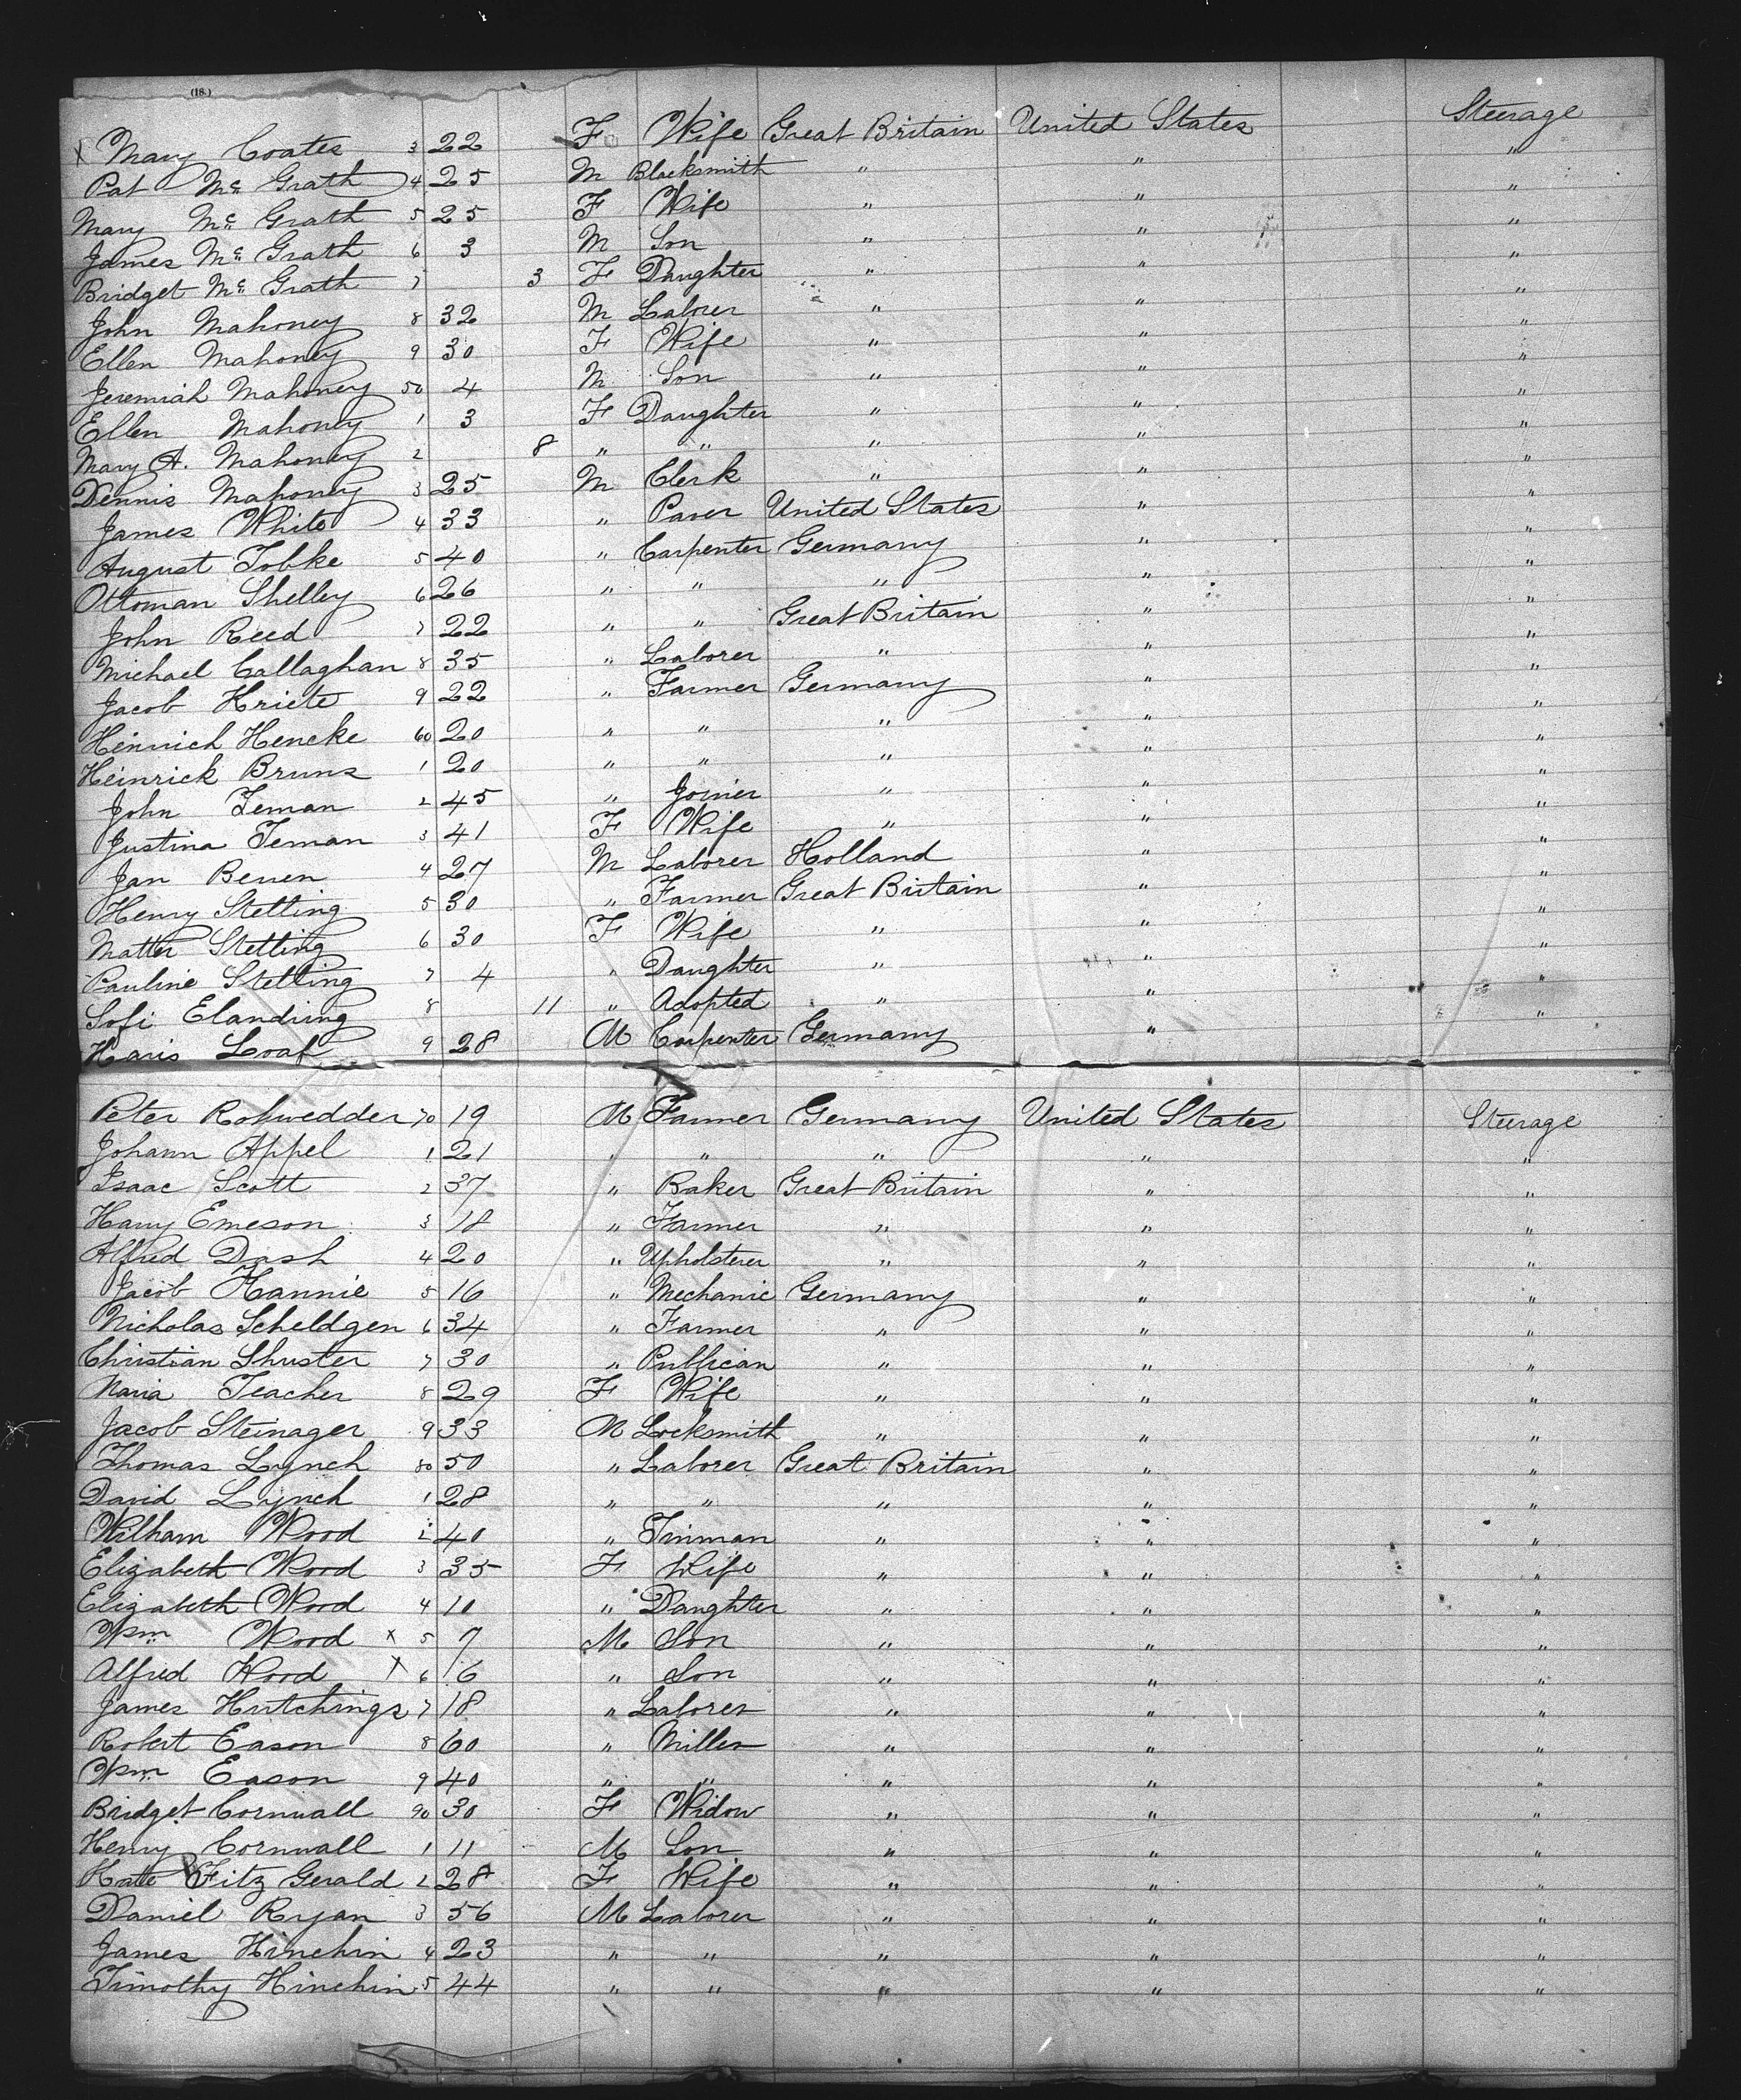 (18.)
X Mary Coates 3 22 F Wife Great Britain United States Steerage
Pat Mc Grath 4 25 M Blacksmith " " "
Mary Mc Grath 5 25 F Wife " " "
James Mc Grath 6 3 M Son " " "
Bridget Mc Grath 7 3 F Daughter " " "
John Mahoney 8 32 M Laborer " " "
Ellen Mahoney 9 30 F Wife " " "
Jeremiah Mahoney 50 4 M Son " " "
Ellen Mahoney 1 3 F Daughter " " "
Mary A. Mahoney 2 8 " " " " "
Dennis Mahoney 3 25 M Clerk " " "
James White 4 33 " Paver United States " "
August Tobke 5 40 " Carpenter Germany " "
Ottoman Shelley 6 26 " " " " "
John Reed 7 22 " " Great Britain " "
Michael Callaghan 8 35 " Laborer " " "
Jacob Kriete 9 22 " Farmer Germany " "
Heinrich Hencke 60 20 " " " " "
Heinrick Bruns 1 20 " " " " "
John Teman 2 45 " Joiner " " "
Justina Teman 3 41 F Wife " " "
Jan Benen 4 27 M Laborer Holland " "
Henry Stelling 5 30 " Farmer Great Britain " "
Matter Stelling 6 30 F Wife " " "
Pauline Stelling 7 4 " Daughter " " "
Sofi Elandring 8 11 " Adopted " " "
Haris Loaf 9 28 M Carpenter Germany " "
Peter Rohwedder 70 19 M Farmer Germany United States Steerage
Johann Appel 1 21 " " " " "
Isaac Scott 2 37 " Baker Great Britain " "
Harry Emeson 3 18 " Farmer " " "
Alfred Dash 4 20 " Upholsterer " " "
Jacob Hannie 5 16 " Mechanic Germany " "
Nicholas Scheldgen 6 34 " Farmer " " "
Christian Shuster 7 30 " Publican " " "
Maria Teacher 8 29 F Wife " " "
Jacob Steinager 9 33 M Locksmith " " "
Thomas Lynch 80 50 " Laborer Great Britain " "
David Lynch 1 28 " " " " "
William Wood 2 40 " Tinman " " "
Elizabeth Wood 3 35 F Wife " " "
Elizabeth Wood 4 10 " Daughter " " "
Wm Wood x 5 7 M Son " " "
Alfred Wood X 6 6 " Son " " "
James Hutchings 7 18 " Laborer " " "
Robert Eason 8 60 " Miller " " "
Wm Eason 9 40 " " " " "
Bridget Cornwall 90 30 F Widow " " "
Henry Cornwall 1 11 M Son " " "
Kate Fitz Gerald 2 28 F Wife " " "
Daniel Ryan 3 56 M Laborer " " "
James Hinchin 4 23 " " " " "
Timothy Hinchin 5 44 " " " " "